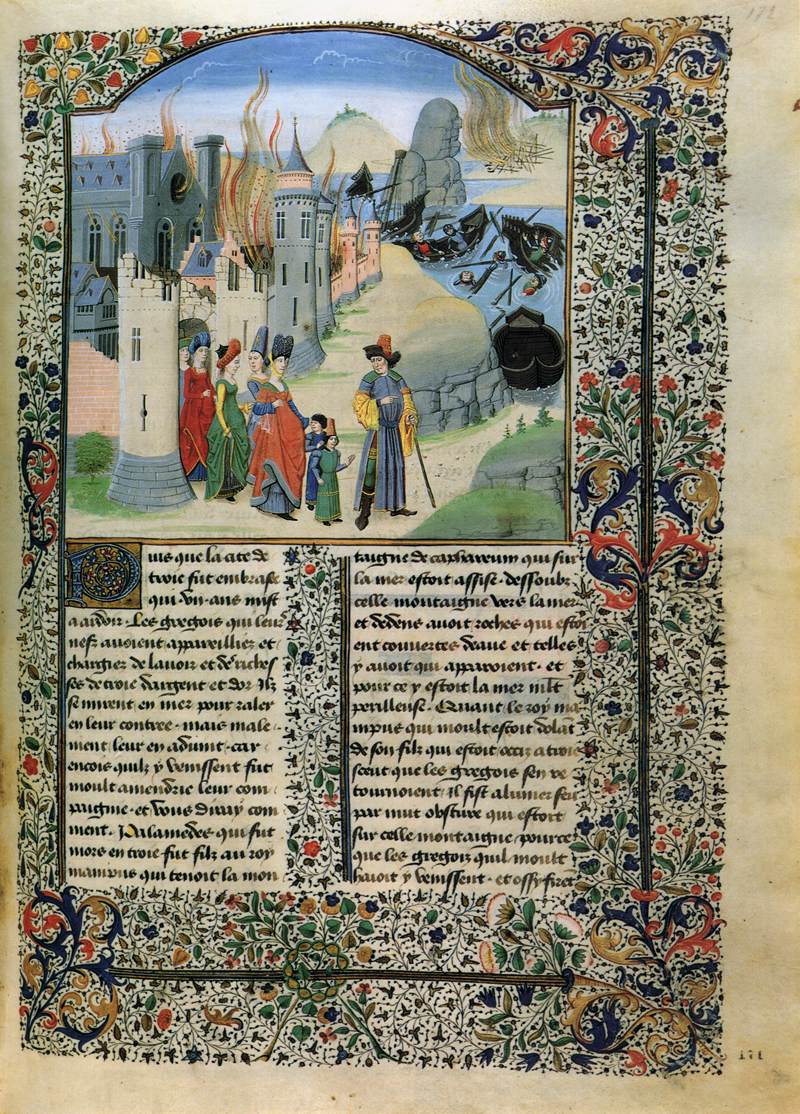 172
Puis que la cite de
troie fut embrasee
qui vn · ans mist
a ardoir · Les gregois qui leurs
nefz auoient appareillier et
chargier de lauoir et de riches
ses de troie dargent et dor Ilz
se mirent en mer pour raler
en leur contree · mais male
ment leur en aduint · car
encois quilz y venissent fut
moult amendrie leur com
paignie · et vous diray com
ment · Palamedes qui fut
mors en troie fut filz au roy
manpus qui tenoit la mon
taigne de caphareum qui sur
la mer estoit assise · dessoubz
celle montaigne vers la mer
et dedens auoit roches qui estoi
ent couuertes deaue et telles
y auoit qui apparoient · et
pour ce y estoit la mer mlt
perilleuse · Quant le roy ma
mpus qui moult estoit dolat
de son filz qui estoit occiz a troie
sceut que les gregois sen re
tournoient Il fist alumer feu
par nuit obscure qui estoit
sur celle montaigne pource
que les gregois quil moult
haioit y venissent · et ossy firet
171